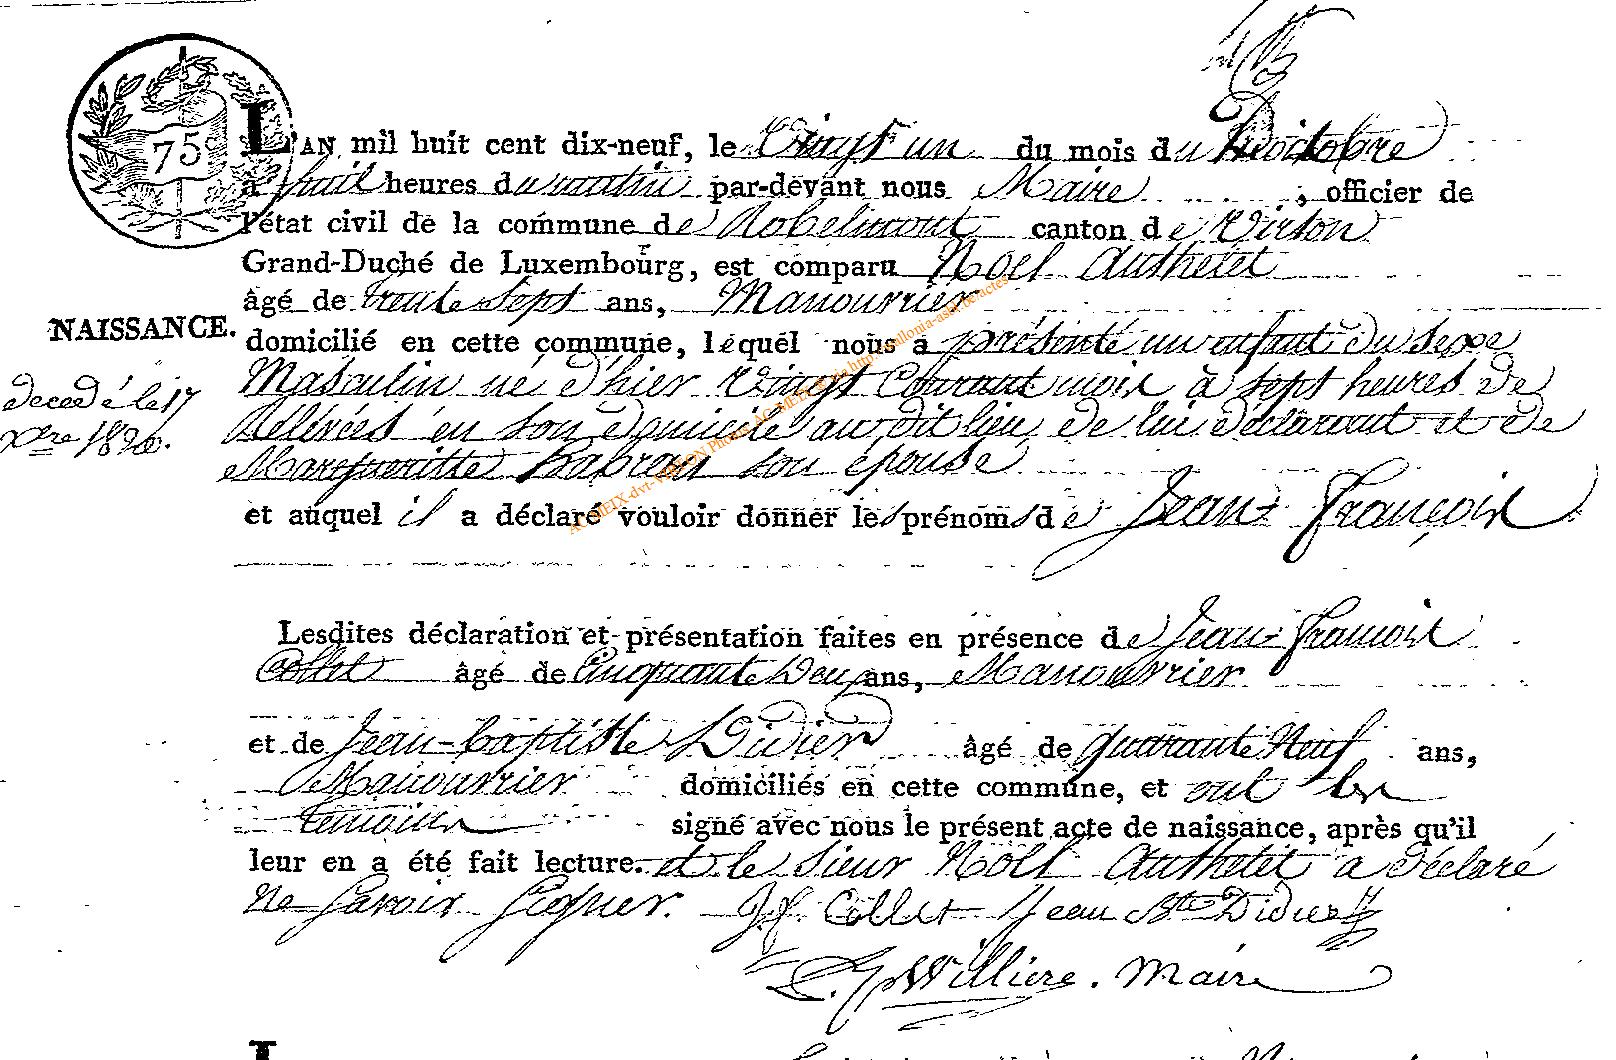 75
L'AN mil huit cent dix-neuf, le Vingt un du mois du octobre
a huit heures du matin par-devant nous Maire, officier de
l'état civil de la commune de Robelmont canton de Virton
Grand-Duché de Luxembourg, est comparu Noël Authelet
âgé de trente sept ans, Manouvrier
NAISSANCE.
domicilié en cette commune, lequel nous a présenté un enfant du sexe
Masculin né d'hier Vingt Courant mois à sept heures de
decedé le 17
Xbre 1820.
Rélévées en son domicile au dit lieu, de lui déclarant et de
Margueritte son épouse
et auquel il a déclaré vouloir donner les prénoms de Jean François
Lesdites déclaration et présentation faites en présence de Jean François
Collet âgé de Cinquante Deux ans, Manouvrier
et de Jean-Baptiste Didier âgé de Quarante Neuf ans,
Manouvrier domiciliés en cette commune, et ont les
temoins signé avec nous le présent acte de naissance, après qu'il
leur en a été fait lecture. et le Sieur Noël Authelet a déclaré
Ne Savoir Signer. J. f. Collet Jean Bte Didier
Williere. Maire